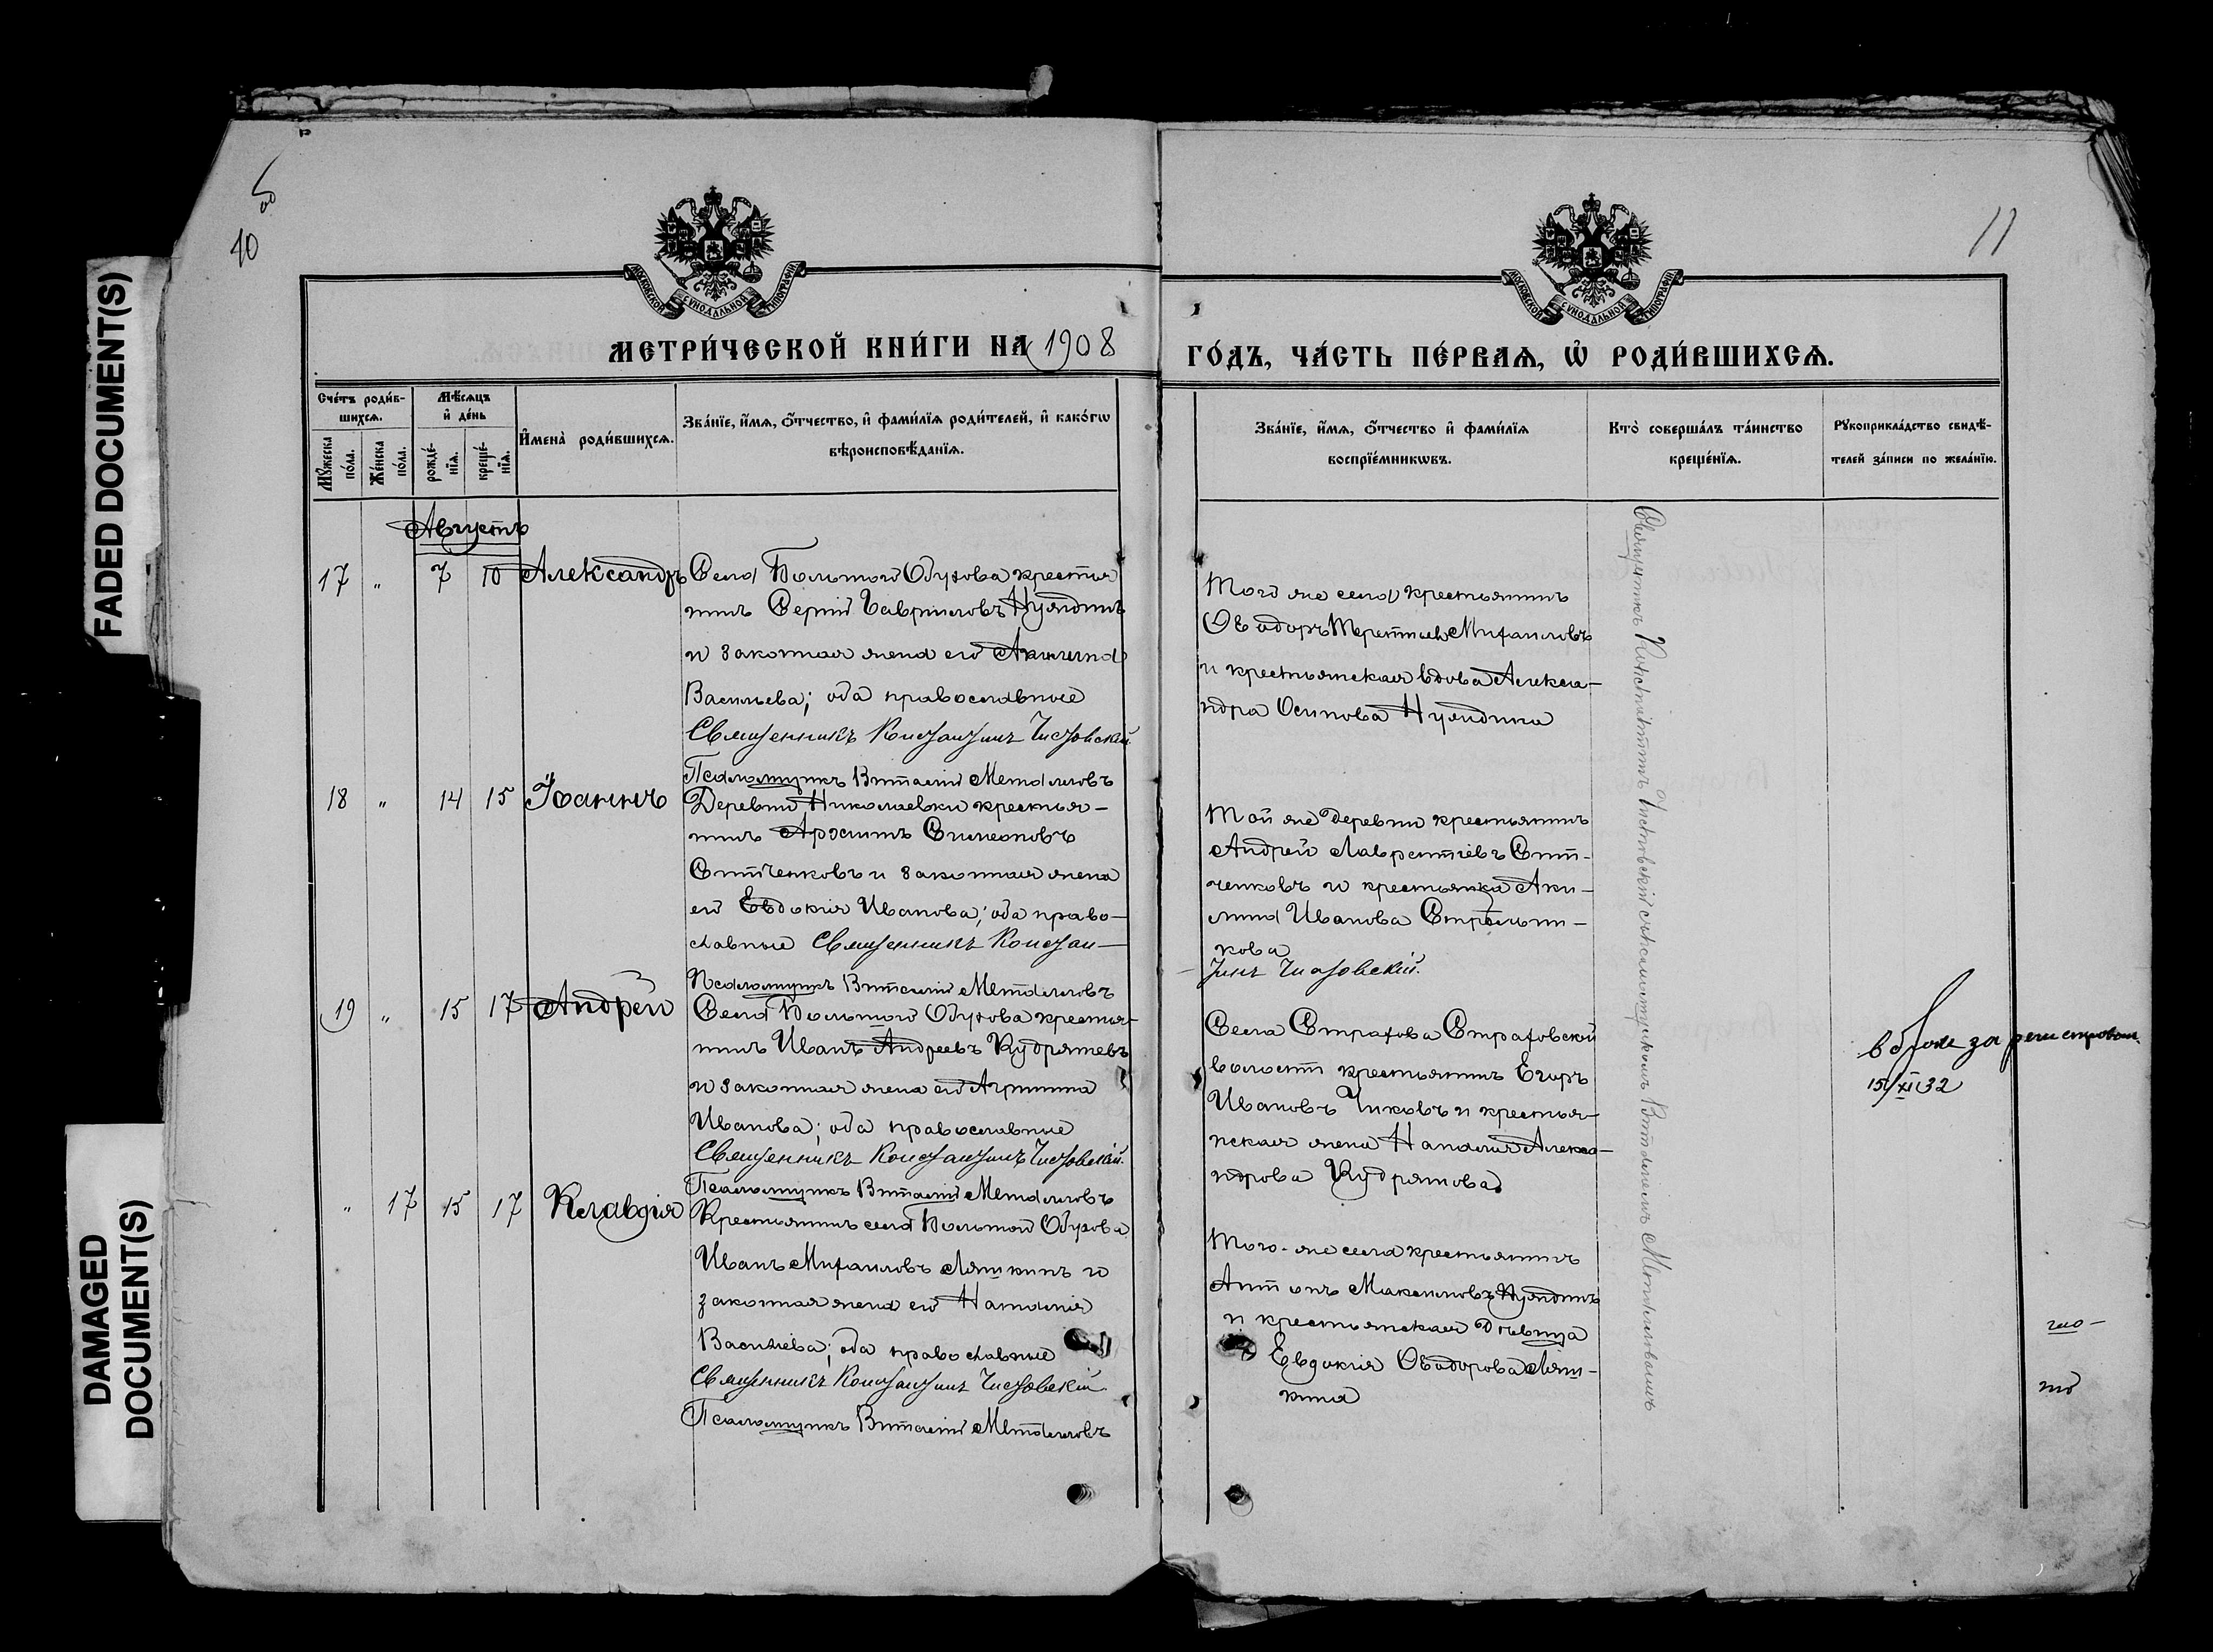 FADED DOCUMENT(S)
DAMAGED
DOCUMENT(S)
40
11
МОСКОВСКОЙ СУНОДАЛЬНОЙ ТИПОГРАФІИ
МОСКОВСКОЙ СУНОДАЛЬНОЙ ТИПОГРАФІИ
МЕТРИ́ЧЕСКОЙ КНИ́ГИ НА 1908
ГО́ДЪ, ЧА́СТЬ ПЕ́РВАѦ, Ѡ҆ РОДИ́ВШИХСѦ.
Сче́тъ роди́в-
шихсѧ.
Мꙋ́жеска
по́ла.
Же́нска
по́ла.
Мѣ́сѧцъ
и҆ де́нь
рожде́-
нїѧ.
креще́-
нїѧ.
И҆мена̀ роди́вшихсѧ.
Зва́нїе, и҆́мѧ, ѻ҆́тчество, и҆ фами́лїѧ роди́телей, и҆ како́гѡ
вѣроисповѣ́данїѧ.
Зва́нїе, и҆́мѧ, ѻ҆́тчество и҆ фами́лїѧ
воспрїе́мникѡвъ.
Кто̀ соверша́лъ та́инство
креще́нїѧ.
Рꙋкоприкла́дство свидѣ́-
телей за́писи по жела́нїю.
Августъ
17 „ 7 10 Александръ Села Большой Обухова крестья
нинъ Сергій Гавриловъ Нуждинъ
и законная жена его Акилина
Васильева; оба православные
Священникъ Константинъ Чистовскій.
Псаломщикъ Виталій Металловъ
Того же села крестьянинъ
Ѳеодоръ Терентіевъ Михаиловъ
и крестьянская вдова Алекса-
ндра Осипова Нуждина
18 „ 14 15 Іоаннъ Деревни Николаевки крестья-
нинъ Архипъ Симеоновъ
Ситченковъ и законная жена
его Евдокія Иванова; оба право-
славные Священникъ Констан-
Псаломщикъ Виталій Металловъ
Той же деревни крестьянинъ
Андрей Лаврентіевъ Сит-
ченковъ и крестьянка Аки-
лина Иванова Стрельни-
кова
-тинъ Чистовскій.
19 „ 15 17 Андрей Села Большой Обухова крестья-
нинъ Иванъ Андреевъ Кудряшевъ
и законная жена его Агрипина
Иванова; оба православные
Священникъ Константинъ Чистовскій.
Псаломщикъ Виталій Металловъ
Села Страхова Страховской
волости крестьянинъ Егоръ
Ивановъ Чиковъ и крестья-
нская жена Наталия Алекса-
ндрова Кудряшова
15/XI 32
„ 17 15 17 Клавдія Крестьянинъ села Большой Обухова
Иванъ Михаиловъ Ляшкинъ и
законная жена его Наталія
Васильева; оба православные
Священникъ Константинъ Чистовскій
Псаломщикъ Виталій Металловъ
Того-же села крестьянинъ
Антонъ Максимовъ Нуждинъ
и крестьянская дѣвица
Евдокія Ѳеодорова Ляш-
кина
Священникъ Константинъ Чистовскій съ псаломщикомъ Виталіемъ Металловымъ